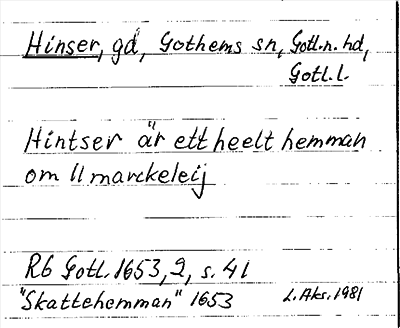 Hinser, gd, Gothems sn, Gotl.n. hd,
Gotl.l.
Hintser är ett heelt hemman
om 11 marckeleij
Rb Gotl. 1653, 2, s. 41
"Skattehemman" 1653 L. Aks. 1981